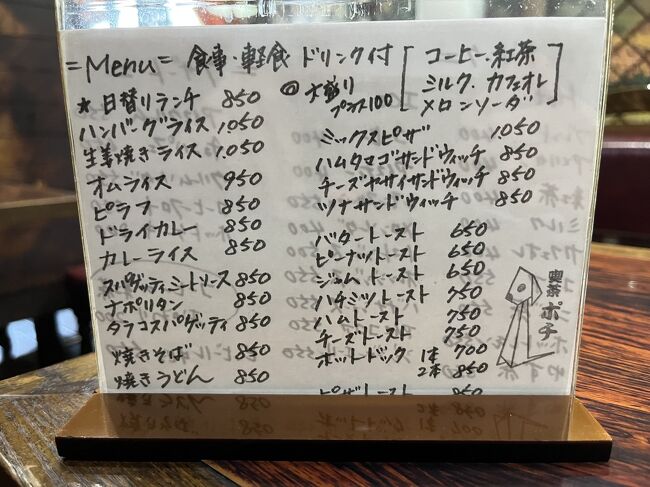 =Menu= 食事・軽食 ドリンク付
コーヒー・紅茶
ミルク・カフェオレ
メロンソーダ
◎ 大盛り
プラス100
★日替りランチ 850
ハンバーグライス 1,050
生姜焼きライス 1,050
オムライス 950
ピラフ 850
ドライカレー 850
カレーライス 850
スパゲッティミートソース 850
ナポリタン 850
タラコスパゲッティ 850
焼きそば 850
焼きうどん 850
ミックスピザ 1,050
ハムタマゴサンドウィッチ 850
チーズヤサイサンドウィッチ 850
ツナサンドウィッチ 850
バタートースト 650
ピーナツトースト 650
ジャムトースト 650
ハチミツトースト 750
ハムトースト 750
チーズトースト 750
ホットドック 1本 700
2本 850
ピザトースト 850
喫茶 ポチ